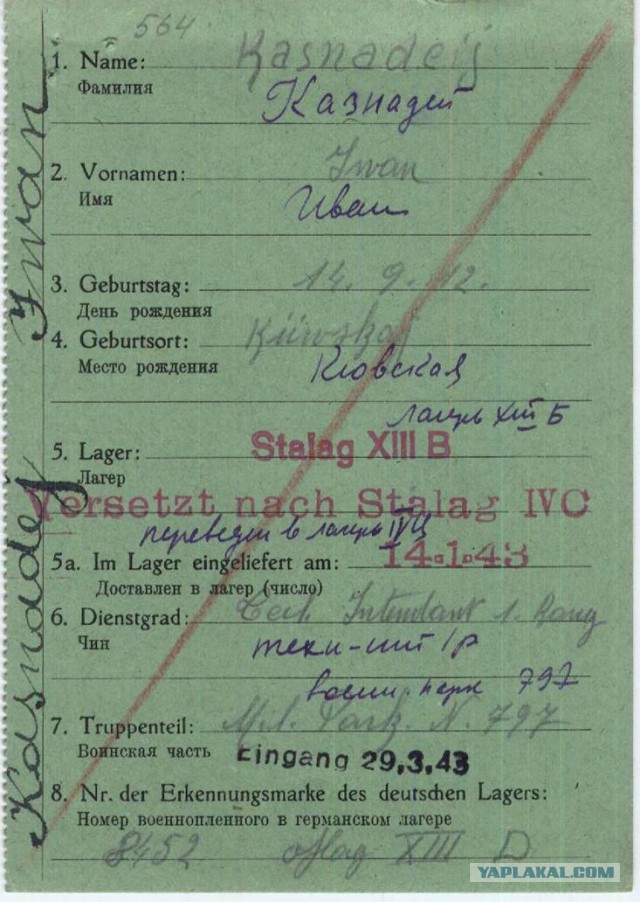 564.
1. Name: Kasnadeij
Фамилия
Казнадей
2. Vornamen: Iwan
Имя
Иван
3. Geburtstag: 14. 9. 12.
День рождения
4. Geburtsort:
Место рождения
Киовская
лагерь XIII Б
5. Lager: Stalag XIII B
Лагерь
Versetzt nach Stalag IVC
переведен в лагерь IVЦ
5a. Im Lager eingeliefert am: 14.1.43
Доставлен в лагер (число)
6. Dienstgrad: Tech. Intendant 1. Rang
Чин
техн-инт 1р
воен парк 797
7. Truppenteil: Mil. Park. N. 797
Воинская часть
Eingang 29.3.43
8. Nr. der Erkennungsmarke des deutschen Lagers:
Номер военнопленного в германском лагере
8452 oflag XIII D
Kasnadej Iwan
YAPLAKAL.COM